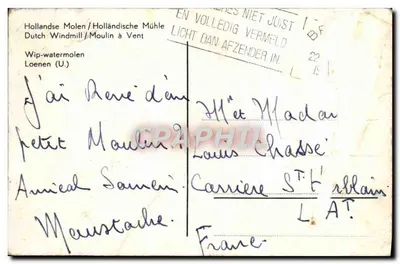 Hollandse Molen/Holländische Mühle
Dutch Windmill/Moulin à Vent
Wip-watermolen
Loenen (U.)
NIET JUIST
EN VOLLEDIG VERMELD
LICHT DAN AFZENDER IN
22
J'ai Rêvé d'un
petit Moulin?
Amical
Moustache.
Mr et Madar
Louis Chassé
Carrière St
L. At.
France